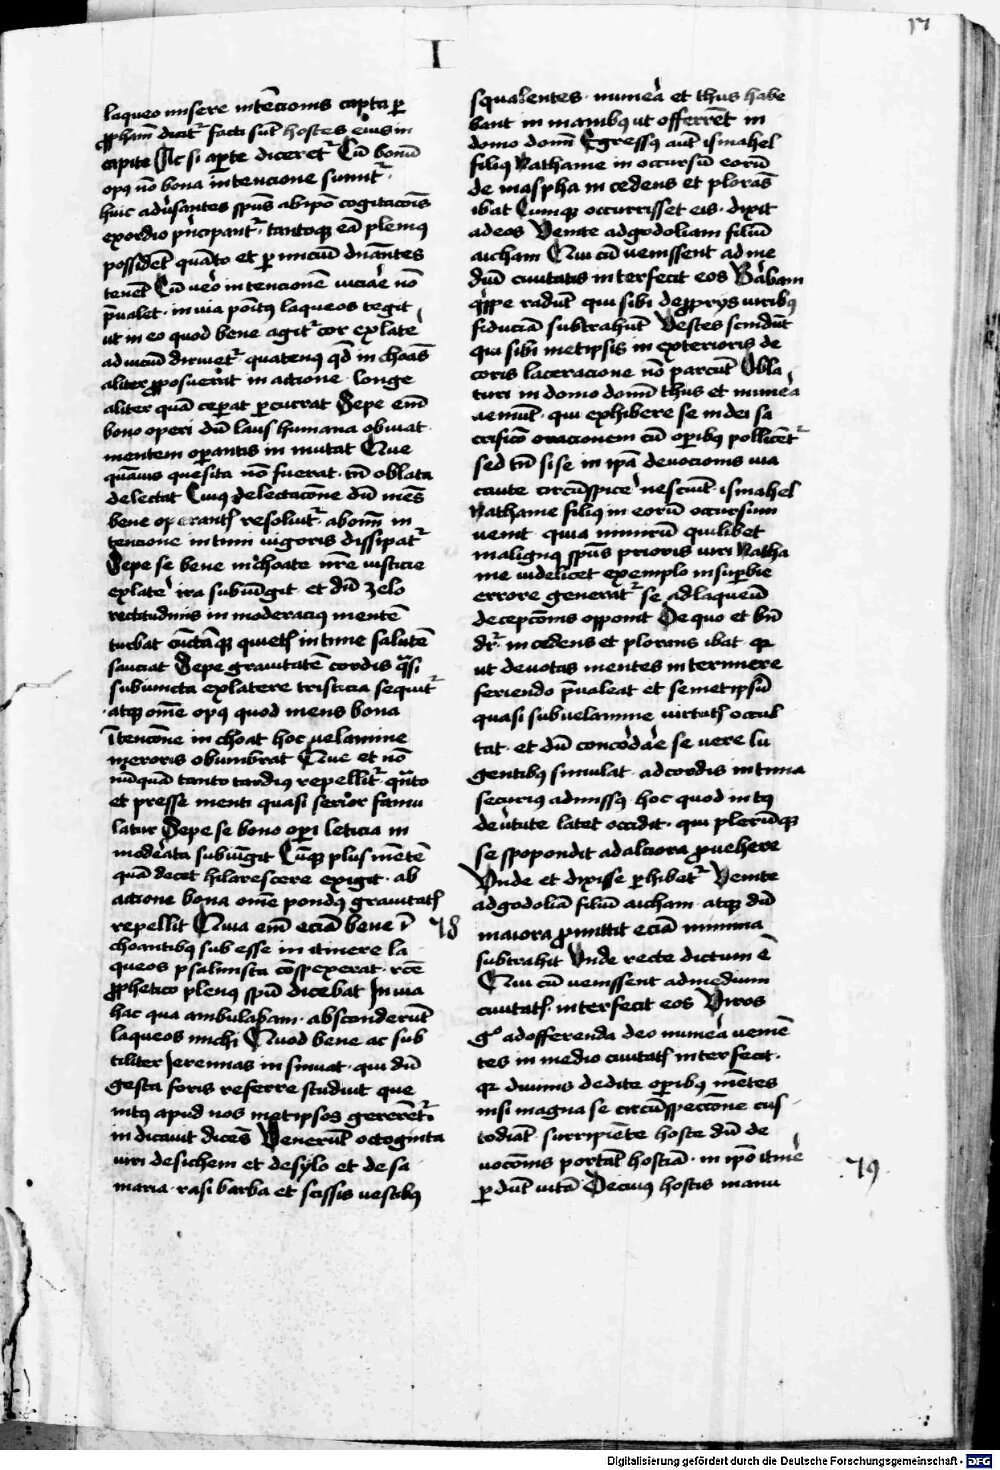 17
I
laqueo misere intēcionis capta per
ꝓpham̄ dicit᷑ facti sūt hostes eius in
capite Ac si aꝑte diceret᷑ Cū bonū
opꝰ nō bona intencione sumit᷑
huic adūsantes spūs ab ipō cogitacōis
exordio pͥncipant᷑ · tantoqꝫ eā plenius
possidēt quāto et per inicium dn̄antes
tenēt Cū ūo intencionē viciare nō
p̄ualet · in via pōitus laqueos tegit
ut in eo quod bene agit᷑ cor ex late
ad viciū diriuet᷑ quatenꝰ qd̄ inchoās
aliter ꝓposuerat in actione longe
aliter quā ceperat ꝑcurrat Sepe em̄
bono operi dū laus humana obuiat
mentem operantis inmutat Que
quāuis quesita nō fuerat · tn̄ oblata
delectat Cuiꝰ delectacōne dū mēs
bene operantis resoluit᷑ · ab om̄i in
tencione intimi vigoris dissipat᷑
Sepe se bene inchoate nr̄e iusticie
ex latere ira subiūgit · et dū zelo
rectitudinis inmoderacius mentē
turbat cūctāqꝫ quietis intime salutē
sauciat Sepe grauitatē cordis q̄si
subiuncta ex latere tristicia sequit᷑
atqꝫ om̄e opꝰ quod mens bona
ītencōne inchoat hoc velamine
meroris obumbrat Que et nō
nūquā tanto tardiꝰ repellit᷑ · quāto
et presse menti quasi serior famu
latur Sepe se bono oꝑi leticia in
moderata subiūgit Cūqꝫ plus mētē
quā decet hilarescere exigit · ab
actione bona om̄e pondꝰ grauitatis
repellit Quia em̄ eciā bene ī
78
choantibꝰ subesse in itinere la
queos psalmista cōspexerat · rc̄e
ꝓphetico plenꝰ spū dicebat In via
hac qua ambulabam · absconderūt
laqueos michi Quod bene ac sub
tiliter Jeremias insinuat · qui dū
gesta foris referre studuit que
intꝰ apud nosmetipsos gererēt᷑
indicauit dicēs Venerūt octoginta
viri de sichem et de sylo et de sa
maria · rasi barba et scissis vestibꝰ
squalentes · munera et thus habe
bant in manibꝰ ut offerrēt in
domo domī Egressꝰ aūt ismahel
filiꝰ Nathanie in occursū eorū
de maspha incedens et plorās
ibat Cumqꝫ occurrisset eis · dixit
ad eos Venite ad godoliam filiū
aicham Qui cū venissent ad me
diū ciuitatis interfecit eos Barbam
q̄ppe radūt qui sibi de ꝓprijs viribꝰ
fiduciā subtrahūt Vestes scindūt
qui sibimetipsis in exterioris de
coris laceracione nō parcūt Obla
turi in domo domī thus et munera
veniūt · qui exhibere se in dei sa
crificō oracionem cū oꝑibꝰ pollicēt᷑
sed tn̄ si se in ip̄a deuocionis via
caute circūspicere nesciūt · ismahel
Nathanie filiꝰ in eorū occursum
venit · quia nimirū quilibet
malignꝰ spūs prioris viri Natha
nie videlicet exemplo in suꝑbie
errore generatꝰ se ad laqueū
decepcōnis opponit De quo et bn̄
dr̄ · incedens et plorans ibat qꝛ
ut deuotas mentes interimere
feriendo p̄ualeat et semetipsū
quasi sub velamine virtutis occul
tat · et dū concordare se vere lu
gentibꝰ simulat · ad cordis intima
securiꝰ admissꝰ · hoc quod intꝰ
de virtute latet occidit · qui plerūqꝫ
se spopondit ad alciora ꝓuehere
Unde et dixisse ꝑhibet᷑ Venite
ad godoliā filiū aicham · atqꝫ dū
maiora ꝓmittit eciā minima
subtrahit Unde recte dictum ē
Qui cū venissent ad medium
ciuitatis · interfecit eos Viros
gͦ ad offerenda deo munera veniē
tes in medio ciuitatis interfecit ·
qꝛ diuinis dedite oꝑibꝰ mētes
nisi magna se circūspeccōne cus
todiāt · surripiēte hoste dū de
uocōnis portāt hostiā · in ipō itineͤ
ꝑdūt vitā De cuiꝰ hostis manu
79
Digitalisierung gefördert durch die Deutsche Forschungsgemeinschaft - DFG